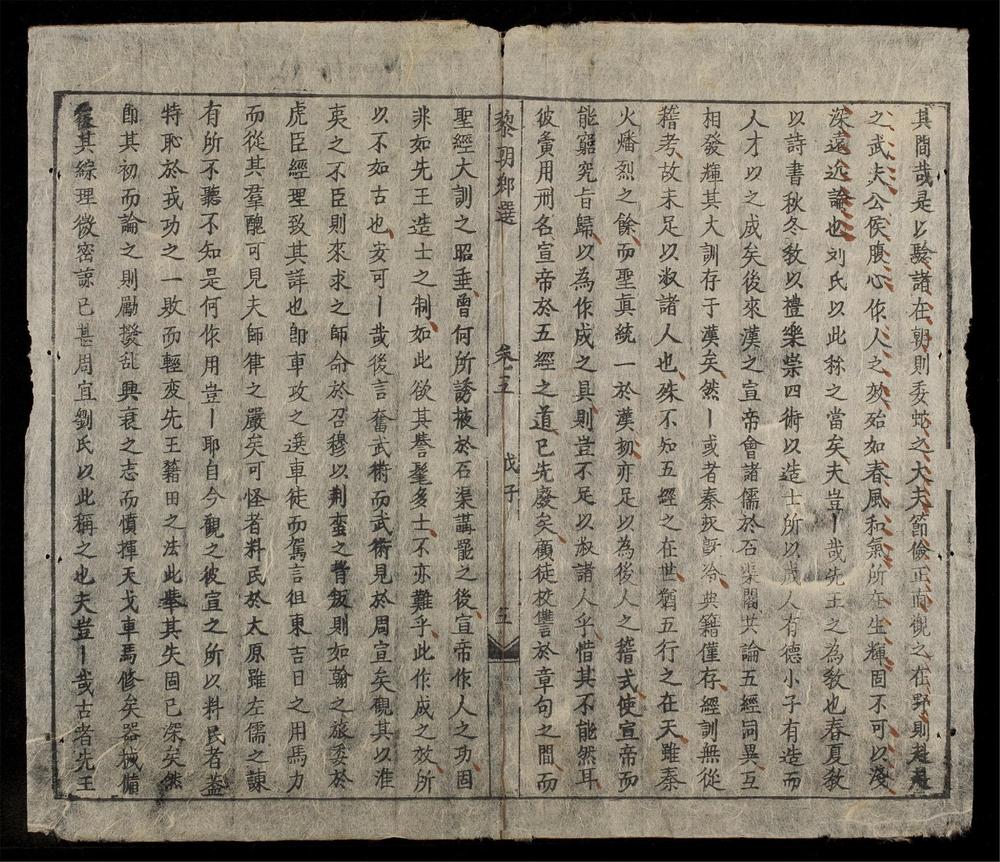 其間哉是以驗諸在朝則委蛇之大夫節儉正直觀之在野則赳赳
之武夫公侯腹心作人之效殆如春風和氣所在生輝固不可以淺
深遠近論也刘氏以此称之當矣夫豈丨哉先王之為教也春夏教
以詩書秋冬教以禮樂崇四術以造士所以成人有德小子有造而
人才以之成矣後來漢之宣帝會諸儒於石渠閣共論五經同異互
相發輝其大訓存于漢矣然丨或者秦坂既冷典籍僅存經訓無從
稽考故未足以淑諸人也殊不知五經之在世猶五行之在天雖秦
火燔烈之餘而聖真統一於漢初亦足以為後人之稽式使宣帝而
能窮究旨歸以為作成之具則豈不足以淑諸人乎惜其不能然耳
彼黃用刑名宣帝於五經之道已先廢矣顧徒校讐於章句之間而
黎朝鄉選 卷五 戊子 五
聖經大訓之昭垂曾何所誘掖於石渠講罷之後宣帝作人之功固
非如先王造士之制如此欲其譽髦多士不亦難乎此作成之效所
以不如古也安可丨哉後言奮武術而武術見於周宣矣觀其以淮
夷之不臣則來求之師命於召穆以荆蠻之背叛則如翰之旅委於
虎臣經理致其詳也即車攻之選車徒而駕言徂東吉日之用馬力
而從其羣醜可見夫師律之嚴矣可怪者料民於太原雖左儒之諫
有所不聽不知是何作用豈丨耶自今觀之彼宣之所以料民者盖
特恥於戎功之一敗而輕变先王籍田之法此舉其失固已深矣然
即其初而論之則勵撥乱興衰之志而憤揮天戈車馬修矣器械備
後其綜理微密諒已甚周宜劉氏以此稱之也夫豈丨哉古者先王